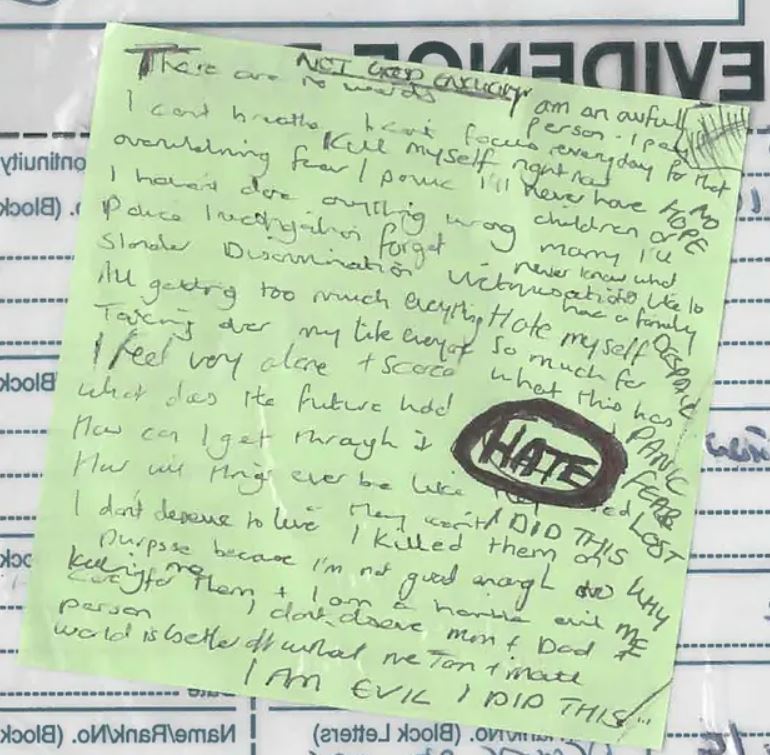 EVIDENCE
NOT GOOD ENOUGH
There are no words
I am an awfull person. I pay everyday for that
I cant breathe I can't focus
Kill myself right now
overwhelming fear / panic I'll never have
NO HOPE
I haven't done anything wrong
children or marry I'll
Police Investigation forget
never know what
Slander Discrimination Victimisation
its like to have a family
All getting too much everything
Hate myself
DESPAIR
Taking over my life
so much for
I feel very alone + scared
what this has
What does the future hold
PANIC
How can I get through it
HATE
FEAR
How will things ever be like they
LOST
I don't deserve to live They won't
I DID THIS
I killed them on
purpose because I'm not good enough to
WHY
care for them + I am a horrible evil
ME
killing me
person I don't deserve mum + Dad +
world is better off without me
I AM EVIL I DID THIS
Name/Rank/No. (Block
Rank/No. (Block Letters)